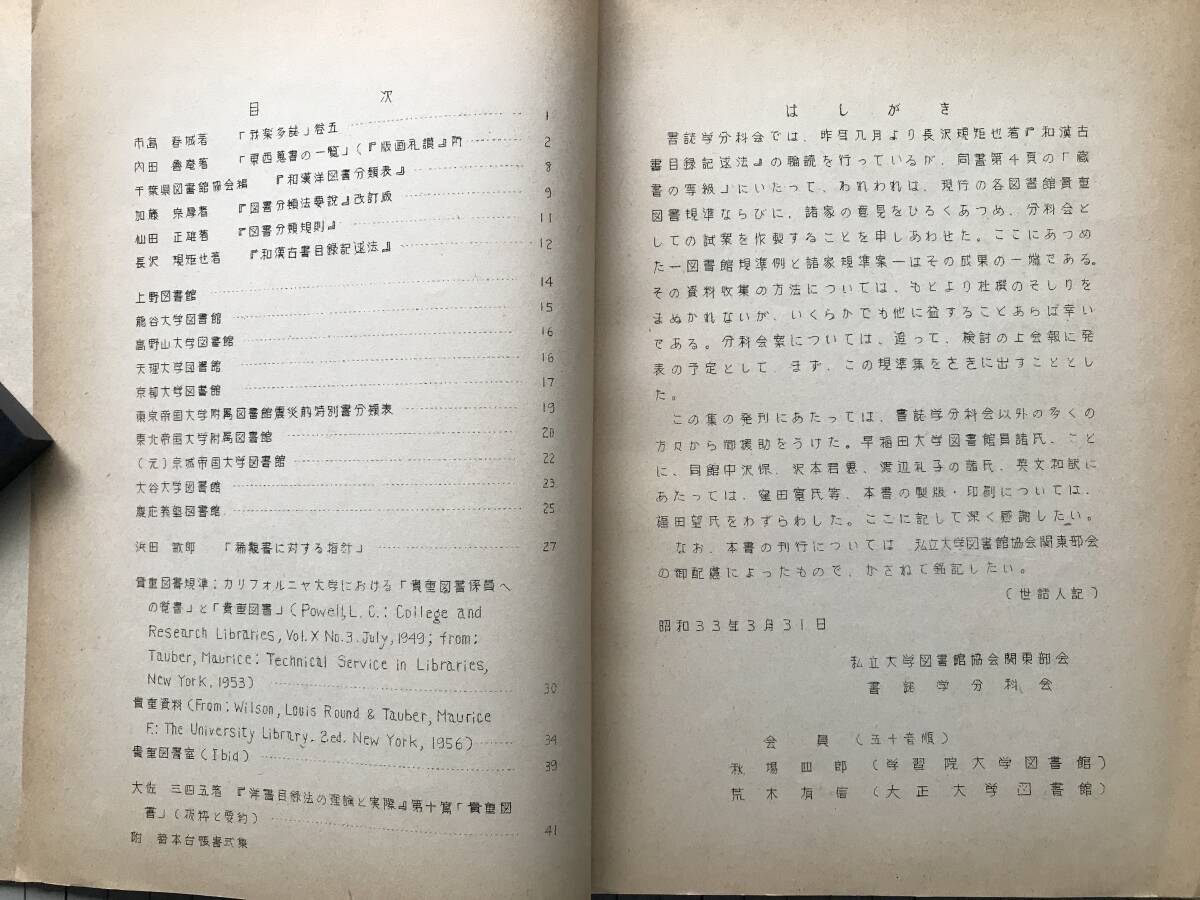 目次
市島 春城著 「我楽多誌」巻五 1
内田 魯庵著 「東西蒐書の一覧」(『版画礼讃』附 2
千葉県図書館協会編 『和漢洋図書分類表』 8
加藤 宗厚著 『図書分類法要説』改訂版 9
仙田 正雄著 『図書分類規則』 11
長沢 規矩也著 『和漢古書目録記述法』 12
上野図書館 14
龍谷大学図書館 15
高野山大学図書館 16
天理大学図書館 16
京都大学図書館 17
東京帝国大学附属図書館震災前特別書分類表 19
東北帝国大学附属図書館 20
(元)京城帝国大学図書館 22
大谷大学図書館 23
慶応義塾図書館 25
浜田 敏郎 「稀覯書に対する指針」 27
貴重図書規準:カリフォルニヤ大学における「貴重図書係員へ
の覚書」と「貴重図書」(Powell, L. C. : College and
Research Libraries, Vol. X No. 3. July, 1949; from:
Tauber, Maurice: Technical Service in Libraries,
New York, 1953) 30
貴重資料(From: Wilson, Louis Round & Tauber, Maurice
F.: The University Library. 2ed. New York, 1956) 34
貴重図書室(Ibid) 39
大佐 三四五著 『洋書目録法の理論と実際』第十篇「貴重図
書」(抜粋と要約) 41
附 蕃本台張書式集
はしがき
書誌学分科会では、昨年九月より長沢規矩也著『和漢古
書目録記述法』の輪読を行っているが、同書第4頁の「蔵
書の等級」にいたって、われわれは、現行の各図書館貴重
図書規準ならびに、諸家の意見をひろくあつめ、分科会と
しての試案を作製することを申しあわせた。ここにあつめ
た一図書館規準例と諸家規準案一はその成果の一端である。
その資料収集の方法については、もとより杜撰のそしりを
まぬかれないが、いくらかでも他に益することあらば幸い
である。分科会案については、追って、検討の上会報に発
表の予定として、まず、この規準集をさきに出すこととし
た。
この集の発刊にあたっては、書誌学分科会以外の多くの
方々から御援助をうけた。早稲田大学図書館員諸氏、こと
に、同館中沢保、沢本君恵、渡辺礼子の諸氏、英文和訳に
あたっては、窪田寛氏等、本書の製版・印刷については、
福田望氏をわずらわした。ここに記して深く感謝したい。
なお、本書の刊行については 私立大学図書館協会関東部会
の御配慮によったもので、かさねて銘記したい。
(世話人記)
昭和33年3月31日
私立大学図書館協会関東部会
書誌学分科会
会員(五十音順)
秋場四郎(学習院大学図書館)
荒木有信(大正大学図書館)